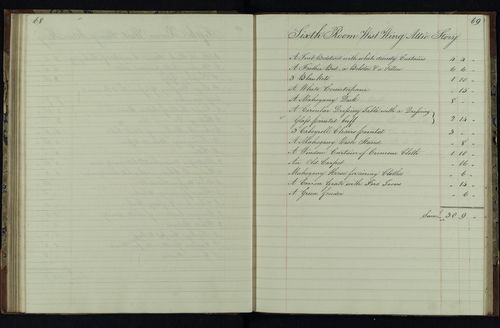 68
69
Sixth Room West Wing Attic Story
A Tent Bedstead with white dimity Curtains 4 4 -
A Feather Bed, a Bolster & a Pillow 6 6 -
3 Blankets 1 10 -
A White Counterpane - 15 -
A Mahogany Desk 8 - -
A Circular Dressing Table with a Dressing
Glass painted buff 2 14 -
3 Chairs painted 3 - -
A Mahogany Wash Stand - 8 -
A Window Curtain of Crimson Cloth 1 10 -
An Old Carpet - 16 -
Mahogany Horse for airing Clothes - 6 -
A Grate with Fire Irons - 15 -
A Green Fender - 6 -
30 9 -